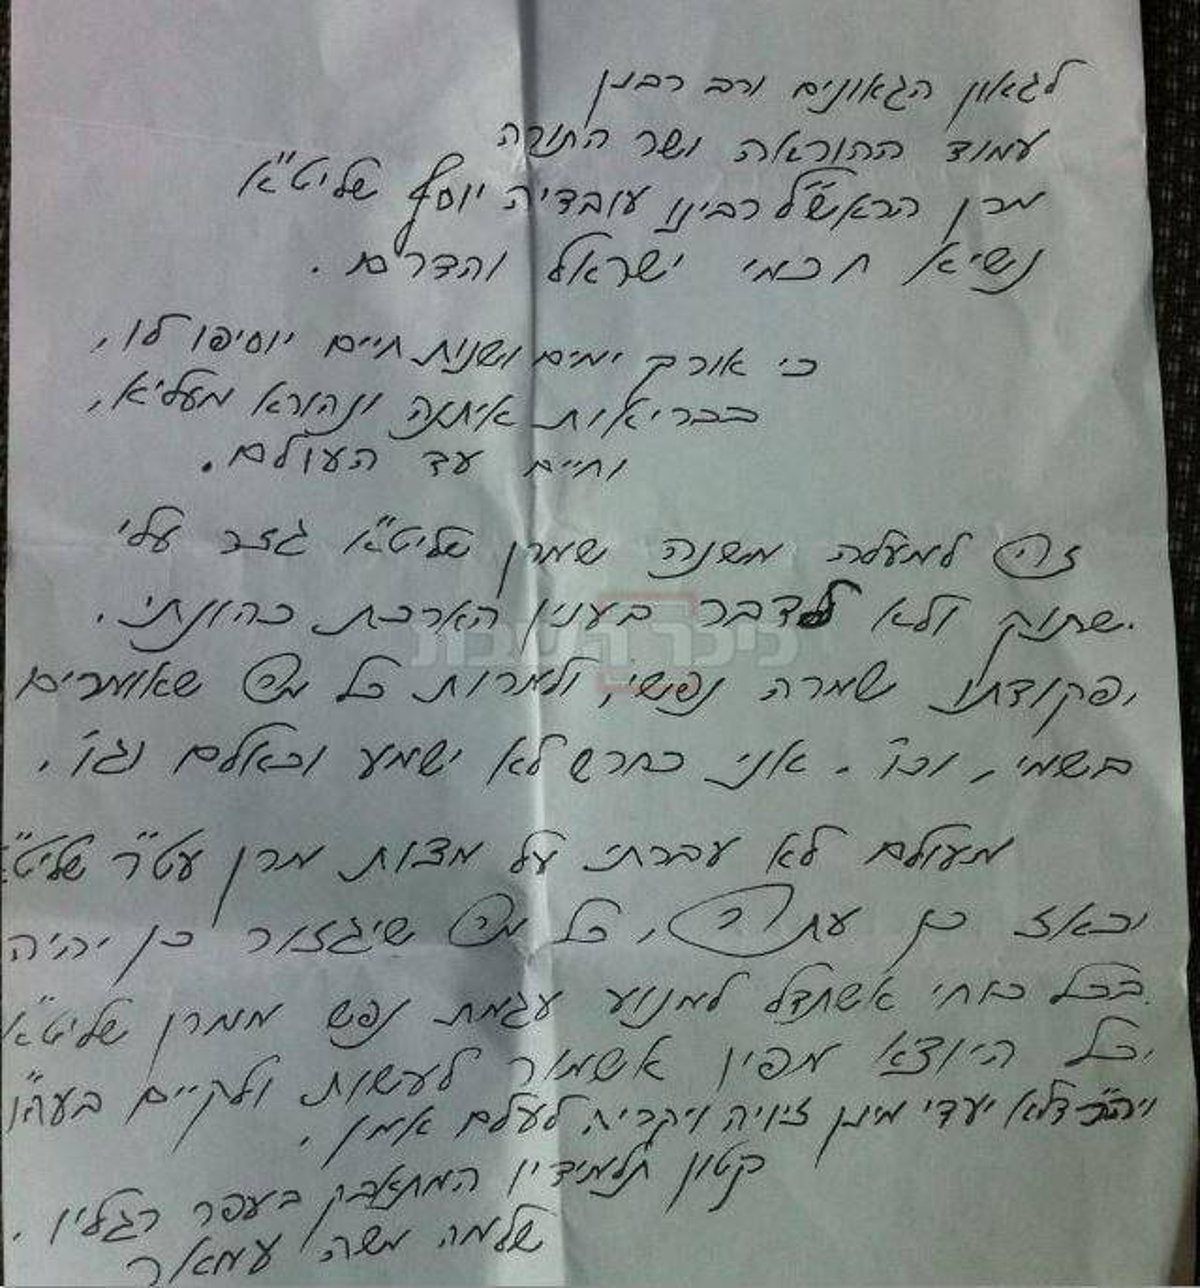 לגאון הגאונים ורב רבנן
עמוד ההוראה ושר התורה
מרן הראש"ל רבינו עובדיה יוסף שליט"א
נשיא חכמי ישראל והדרם.
כי אורך ימים ושנות חיים יוסיפו לו,
בבריאות איתנה ונהורא מעליא,
וחיים עד העולם.
זה למעלה משנה שמרן שליט"א גזר עלי
שתוק ולא לדבר בענין הארכת כהונתי.
כיכר השבת
ופקודתו שמרה נפשי, ולמרות כל מה שאומרים
בשמי, וכו'. אני כחרש לא ישמע וכאלם וגו'.
מעולם לא עברתי על מצות מרן עט"ר שליט"א
וכאז כן עתה, כל מה שיגזור כן יהיה
בכל כוחי אשתדל למנוע עגמת נפש ממרן שליט"א
וכל היוצא מפיו אשמור לעשות ולקיים בעה"ו
ויה"ר דלא יעדי מינן זיויה ויקריה לעלם אמן.
קטון תלמידיו המתאבק בעפר רגליו.
שלמה משה עמאר